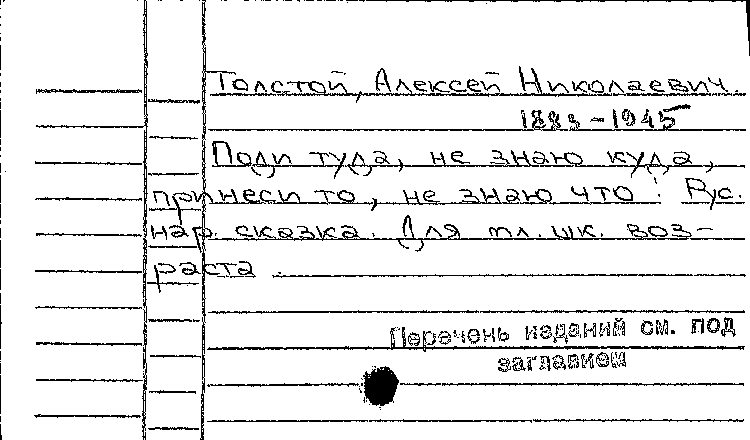 Толстой, Алексей Николаевич.
1883-1945
Поди туда, не знаю куда,
принеси то, не знаю что : Рус.
нар. сказка. Для мл. шк. воз-
раста.
Перечень изданий см. под
заглавием